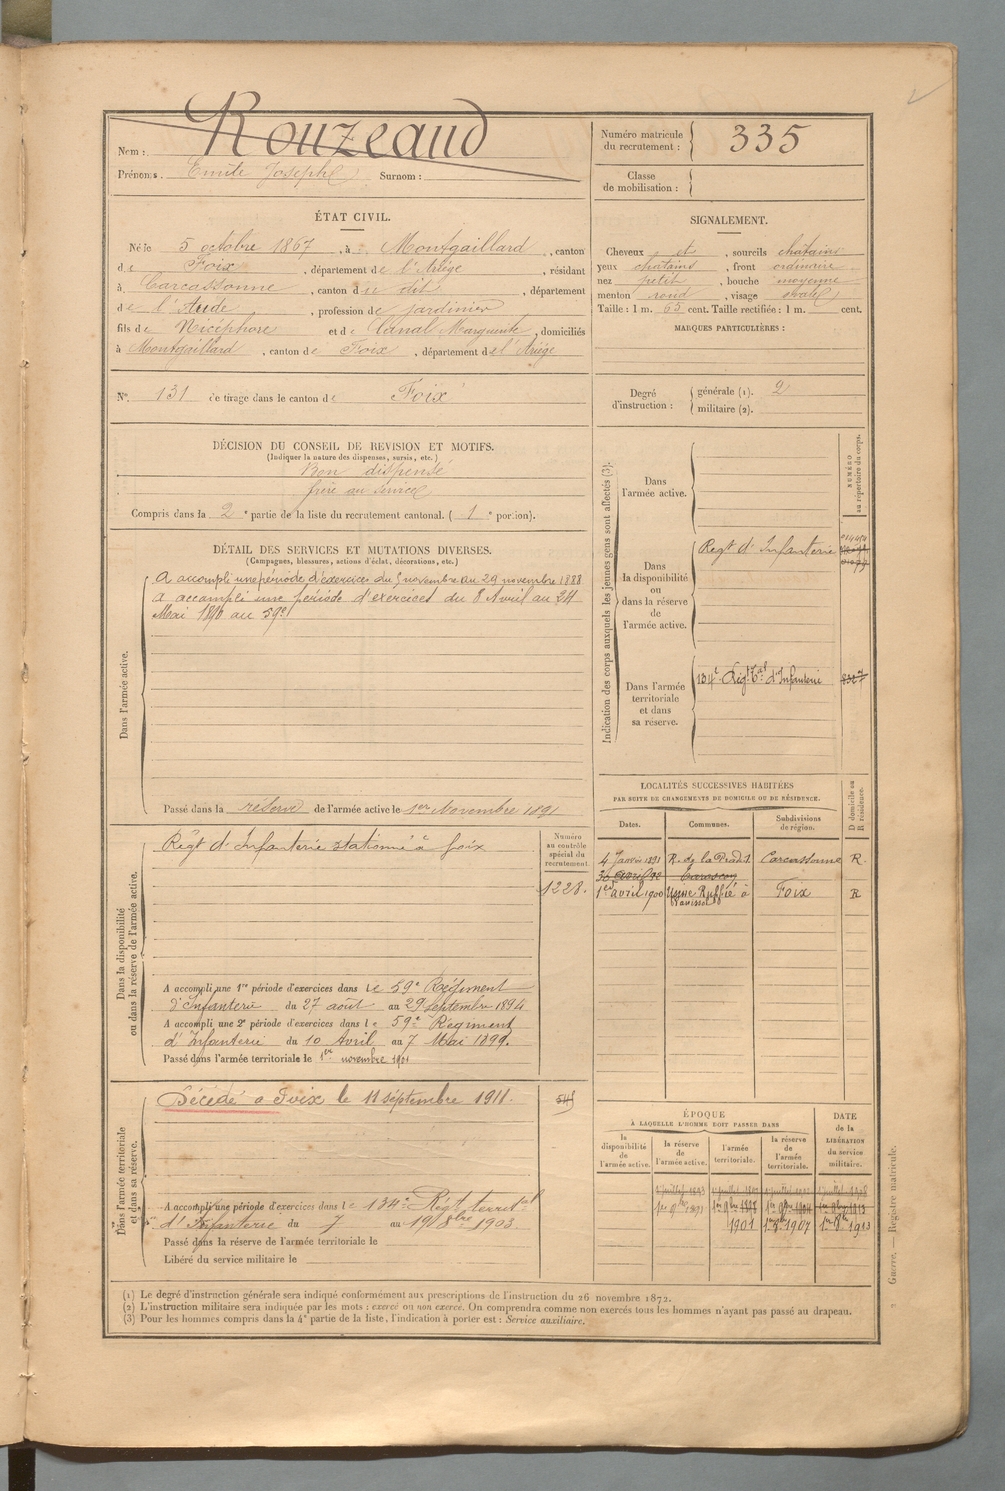 Nom : Rouzeaud
Prénoms : Emile Joseph Surnom :
Numéro matricule du recrutement : 335
Classe de mobilisation :
ÉTAT CIVIL.
Né le 5 octobre 1867, à Montgaillard, canton
de Foix, département de l'Ariège, résidant
à Carcassonne, canton du dit, département
de l'Aude, profession de jardinier
fils de Nicéphore et de Canal Marguerite, domiciliés
à Montgaillard, canton de Foix, département de l'Ariège
N° 131 de tirage dans le canton de Foix
SIGNALEMENT.
Cheveux et, sourcils chatains
yeux chatains, front ordinaire
nez petit, bouche moyenne
menton rond, visage ovale
Taille : 1 m. 65 cent. Taille rectifiée : 1 m. cent.
MARQUES PARTICULIÈRES :
Degré d'instruction : générale (1). 2
militaire (2).
DÉCISION DU CONSEIL DE REVISION ET MOTIFS.
(Indiquer la nature des dispenses, sursis, etc.)
Bon dispensé
frère au service
Compris dans la 2e partie de la liste du recrutement cantonal. (1e portion).
DÉTAIL DES SERVICES ET MUTATIONS DIVERSES.
(Campagnes, blessures, actions d'éclat, décorations, etc.)
Dans l'armée active.
A accompli une période d'exercices du 5 novembre au 29 novembre 1888
a accompli une période d'exercices du 8 Avril au 24
Mai 1890 au 59e
Passé dans la réserve de l'armée active le 1er Novembre 1891
Dans la disponibilité
ou dans la réserve de l'armée active.
Régt d'Infanterie stationné à Foix
Numéro
au contrôle
spécial du
recrutement.
1228.
A accompli une 1re période d'exercices dans le 59e Régiment
d'Infanterie du 27 août au 29 septembre 1894
A accompli une 2e période d'exercices dans le 59e Régiment
d'Infanterie du 10 Avril au 7 Mai 1899.
Passé dans l'armée territoriale le 1er novembre 1901
Dans l'armée territoriale
et dans sa réserve.
Décédé à Foix le 11 septembre 1911.
A accompli une période d'exercices dans le 134e Régt territal
d'Infanterie du 7 au 19 8bre 1903
Passé dans la réserve de l'armée territoriale le
Libéré du service militaire le
Indication des corps auxquels les jeunes gens sont affectés (3).
NUMÉRO
au répertoire du corps.
Dans
l'armée active.
Dans
la disponibilité
ou
dans la réserve
de
l'armée active.
Regt d'Infanterie
Dans l'armée
territoriale
et dans
sa réserve.
134e Régt Tal d'Infanterie
LOCALITÉS SUCCESSIVES HABITÉES
PAR SUITE DE CHANGEMENTS DE DOMICILE OU DE RÉSIDENCE.
D domicile ou
R résidence.
Dates. Communes. Subdivisions de région.
4 Janvier 1891 R. de la Carcassonne R.
1er avril 1900 Usine Ruffié à Foix R
ÉPOQUE
À LAQUELLE L'HOMME DOIT PASSER DANS
la disponibilité de l'armée active.
la réserve de l'armée active.
l'armée territoriale.
la réserve de l'armée territoriale.
DATE de la LIBÉRATION du service militaire.
1er 9bre 1891
1901 1907 1913
(1) Le degré d'instruction générale sera indiqué conformément aux prescriptions de l'instruction du 26 novembre 1872.
(2) L'instruction militaire sera indiquée par les mots : exercé ou non exercé. On comprendra comme non exercés tous les hommes n'ayant pas passé au drapeau.
(3) Pour les hommes compris dans la 4e partie de la liste, l'indication à porter est : Service auxiliaire.
Guerre. — Registre matricule.